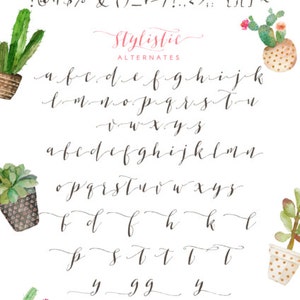 Stylistic
ALTERNATES
a b c d e f g h i j k
l m n o p q r s t u
v w x y s
a b c d e f g h i j k l m n
o p q r s t u v w x y s
b d f h k l
p s t t t T
y g g y